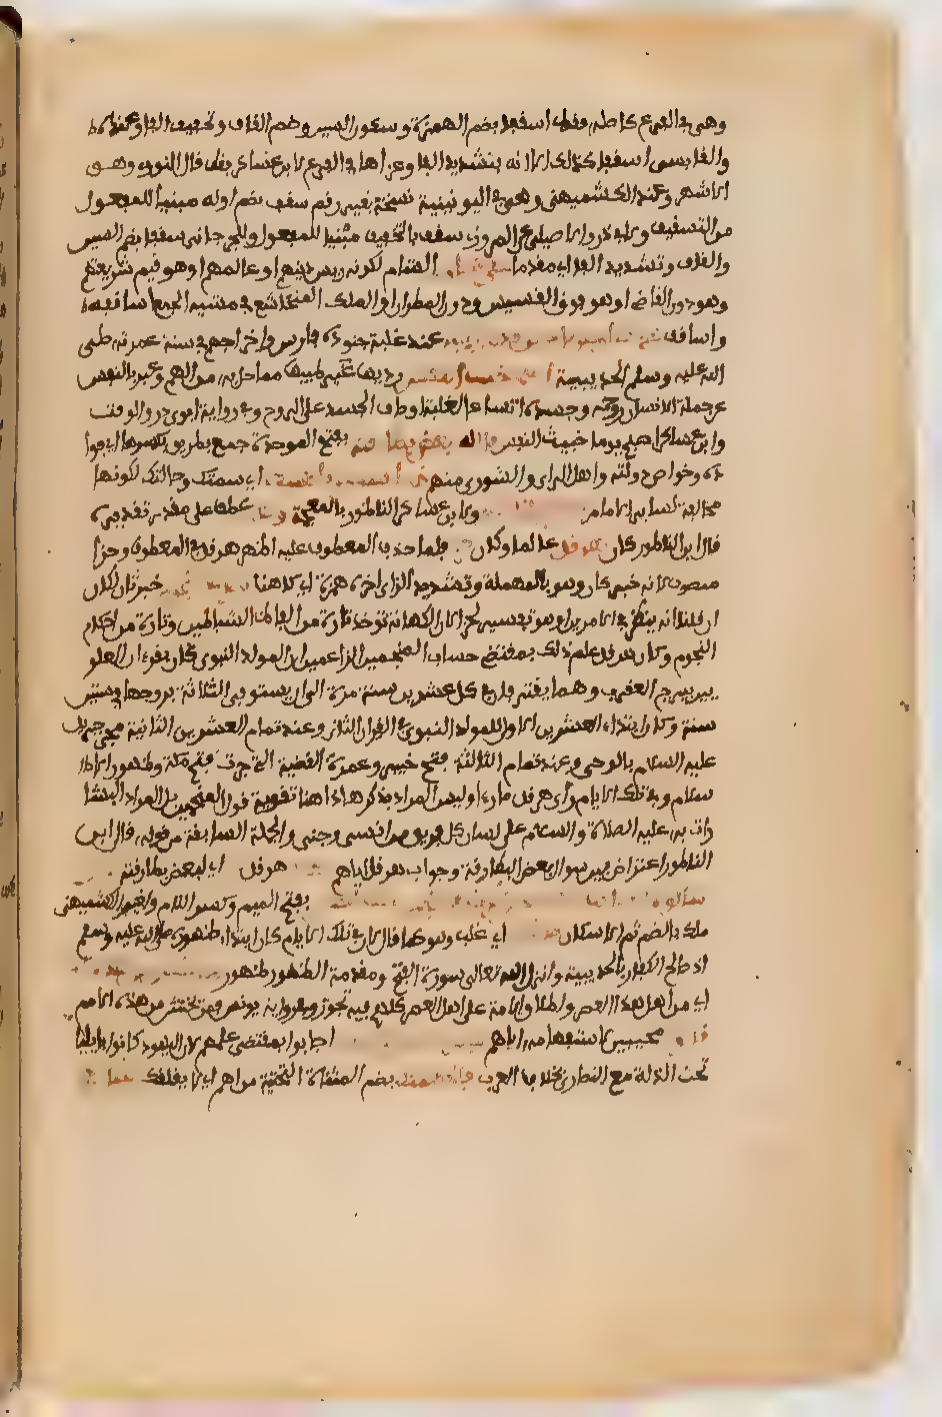 وهي في الفرع كأصله فقط اسقفا بضم الهمزة وسكون السين وضم القاف وتخفيف الفا وعند
والقابسي اسقفا كذلك الا انه بتشديد الفا وعزاها في الفرع لابن عساكر فقط قال النووي وهو
الاشهر وعند الكشميهني وهي في اليونينية نسخة بغير رقم سقف بضم اوله مبنيا للمفعول
من التسقيف ولابي ذر والاصيلي عن المروزي سقف بالتخفيف مبنيا للمفعول وللجرجاني سقفا بضم السين
والقاف وتشديد الفا اي مقدما الشام لكونه رييس دينهم او عالمهم او هو قيم شريعتهم
وهو دون القاضي او هو فوق القسيس ودون المطران او الملك المتخاشع في مشيته الجمع اساقفة
واساقف عند غلبة جنوده فارس واخراجهم في سنة عمرته صلى
الله عليه وسلم الحديبية رديها غير طيبها مما حل به من الهم وعبر بالنفس
عن جملة الانسان روحه وجسده اتساعا لغلبة اوصاف الجسد على الروح وفي رواية ابوي ذر والوقت
وابن عساكر اصبح يوما خبيث النفس بفتح الموحدة جمع بطريق بكسرها اي قوا
ده وخواص دولته واهل الراي والشورى منهم اي سمتك وحالتك لكونها
مخالفة لساير الايام ولابن عساكر الناطور بالمعجمة عطف على مقدر تقديره
قال ابن الناطور كان هرقل عالما وكان فلما حذف المعطوف عليه اظهر هرقل في المعطوف وحزا
منصوب لانه خبر كان وهو بالمهملة وتشديد الزاي اخره همزة اي كاهنا خبر ثان لكان
ان قلنا انه ينظر في الامرين او هو تفسير لحزا لان الكهانة توخذ تارة من الفاظ الشياطين وتارة من احكام
النجوم وكان هرقل علم ذلك بمقتضى حساب المنجمين الزاعمين ان المولد النبوي كان بقران العلو
يين ببرج العقرب وهما يقترنان في كل عشرين سنة مرة الى ان يستوفي الثلاثة بروجها في ستين
سنة وكان ابتداء العشرين الاول للمولد النبوي في القران الثاني وعند تمام العشرين الثانية مجي جبريل
عليه السلام بالوحي وعند تمام الثالثة فتح خيبر وعمرة القضية التي جرت فتح مكة وظهور الا
سلام وفي تلك الايام راى هرقل ما راى وليس المراد بذكر هذا هنا تقوية قول المنجمين بل المراد البشا
رات به عليه الصلاة والسلام على لسان كل فريق من انسي وجني والجملة السابقة من قوله قال ابن
الناطور اعتراض بين سوال بعض البطارقة وجواب هرقل اياهم هرقل اي لبعض بطارقته
بفتح الميم وكسر اللام ولغير الكشميهني
ملك بالضم ثم الاسكان اي غلب وهو كما قال لان في تلك الايام كان ابتداء ظهوره صلى الله عليه وسلم
اذ صالح الكفار بالحديبية وانزل الله تعالى سورة الفتح ومقدمة الظهور ظهور
اي من اهل هذا العصر واطلاق الامة على اهل العصر كلهم فيه تجوز وفي رواية يونس فمن يختتن من هذه الامم
مجيبين لاستفهامه اياهم اجابوا بمقتضى علمهم لان اليهود كانوا بايليا
تحت الذلة مع النصارى بخلاف العرب بضم المثناة التحتية من اهم اي لا يقلقك